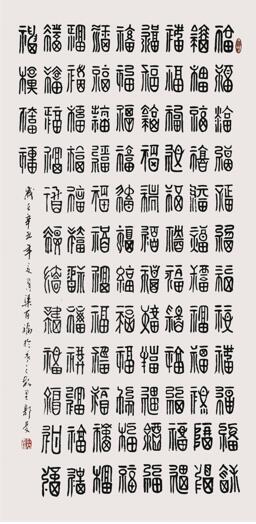 福福福福福福福福福福福福
福福福福福福福福福福福福
福福福福福福福福福福福福
福福福福福福福福福福福福
福福福福福福福福福福福福
福福福福福福福福福福福福
福福福福福福福福福福福福
福福福福福福福福福福福福
福福福福
辛丑年